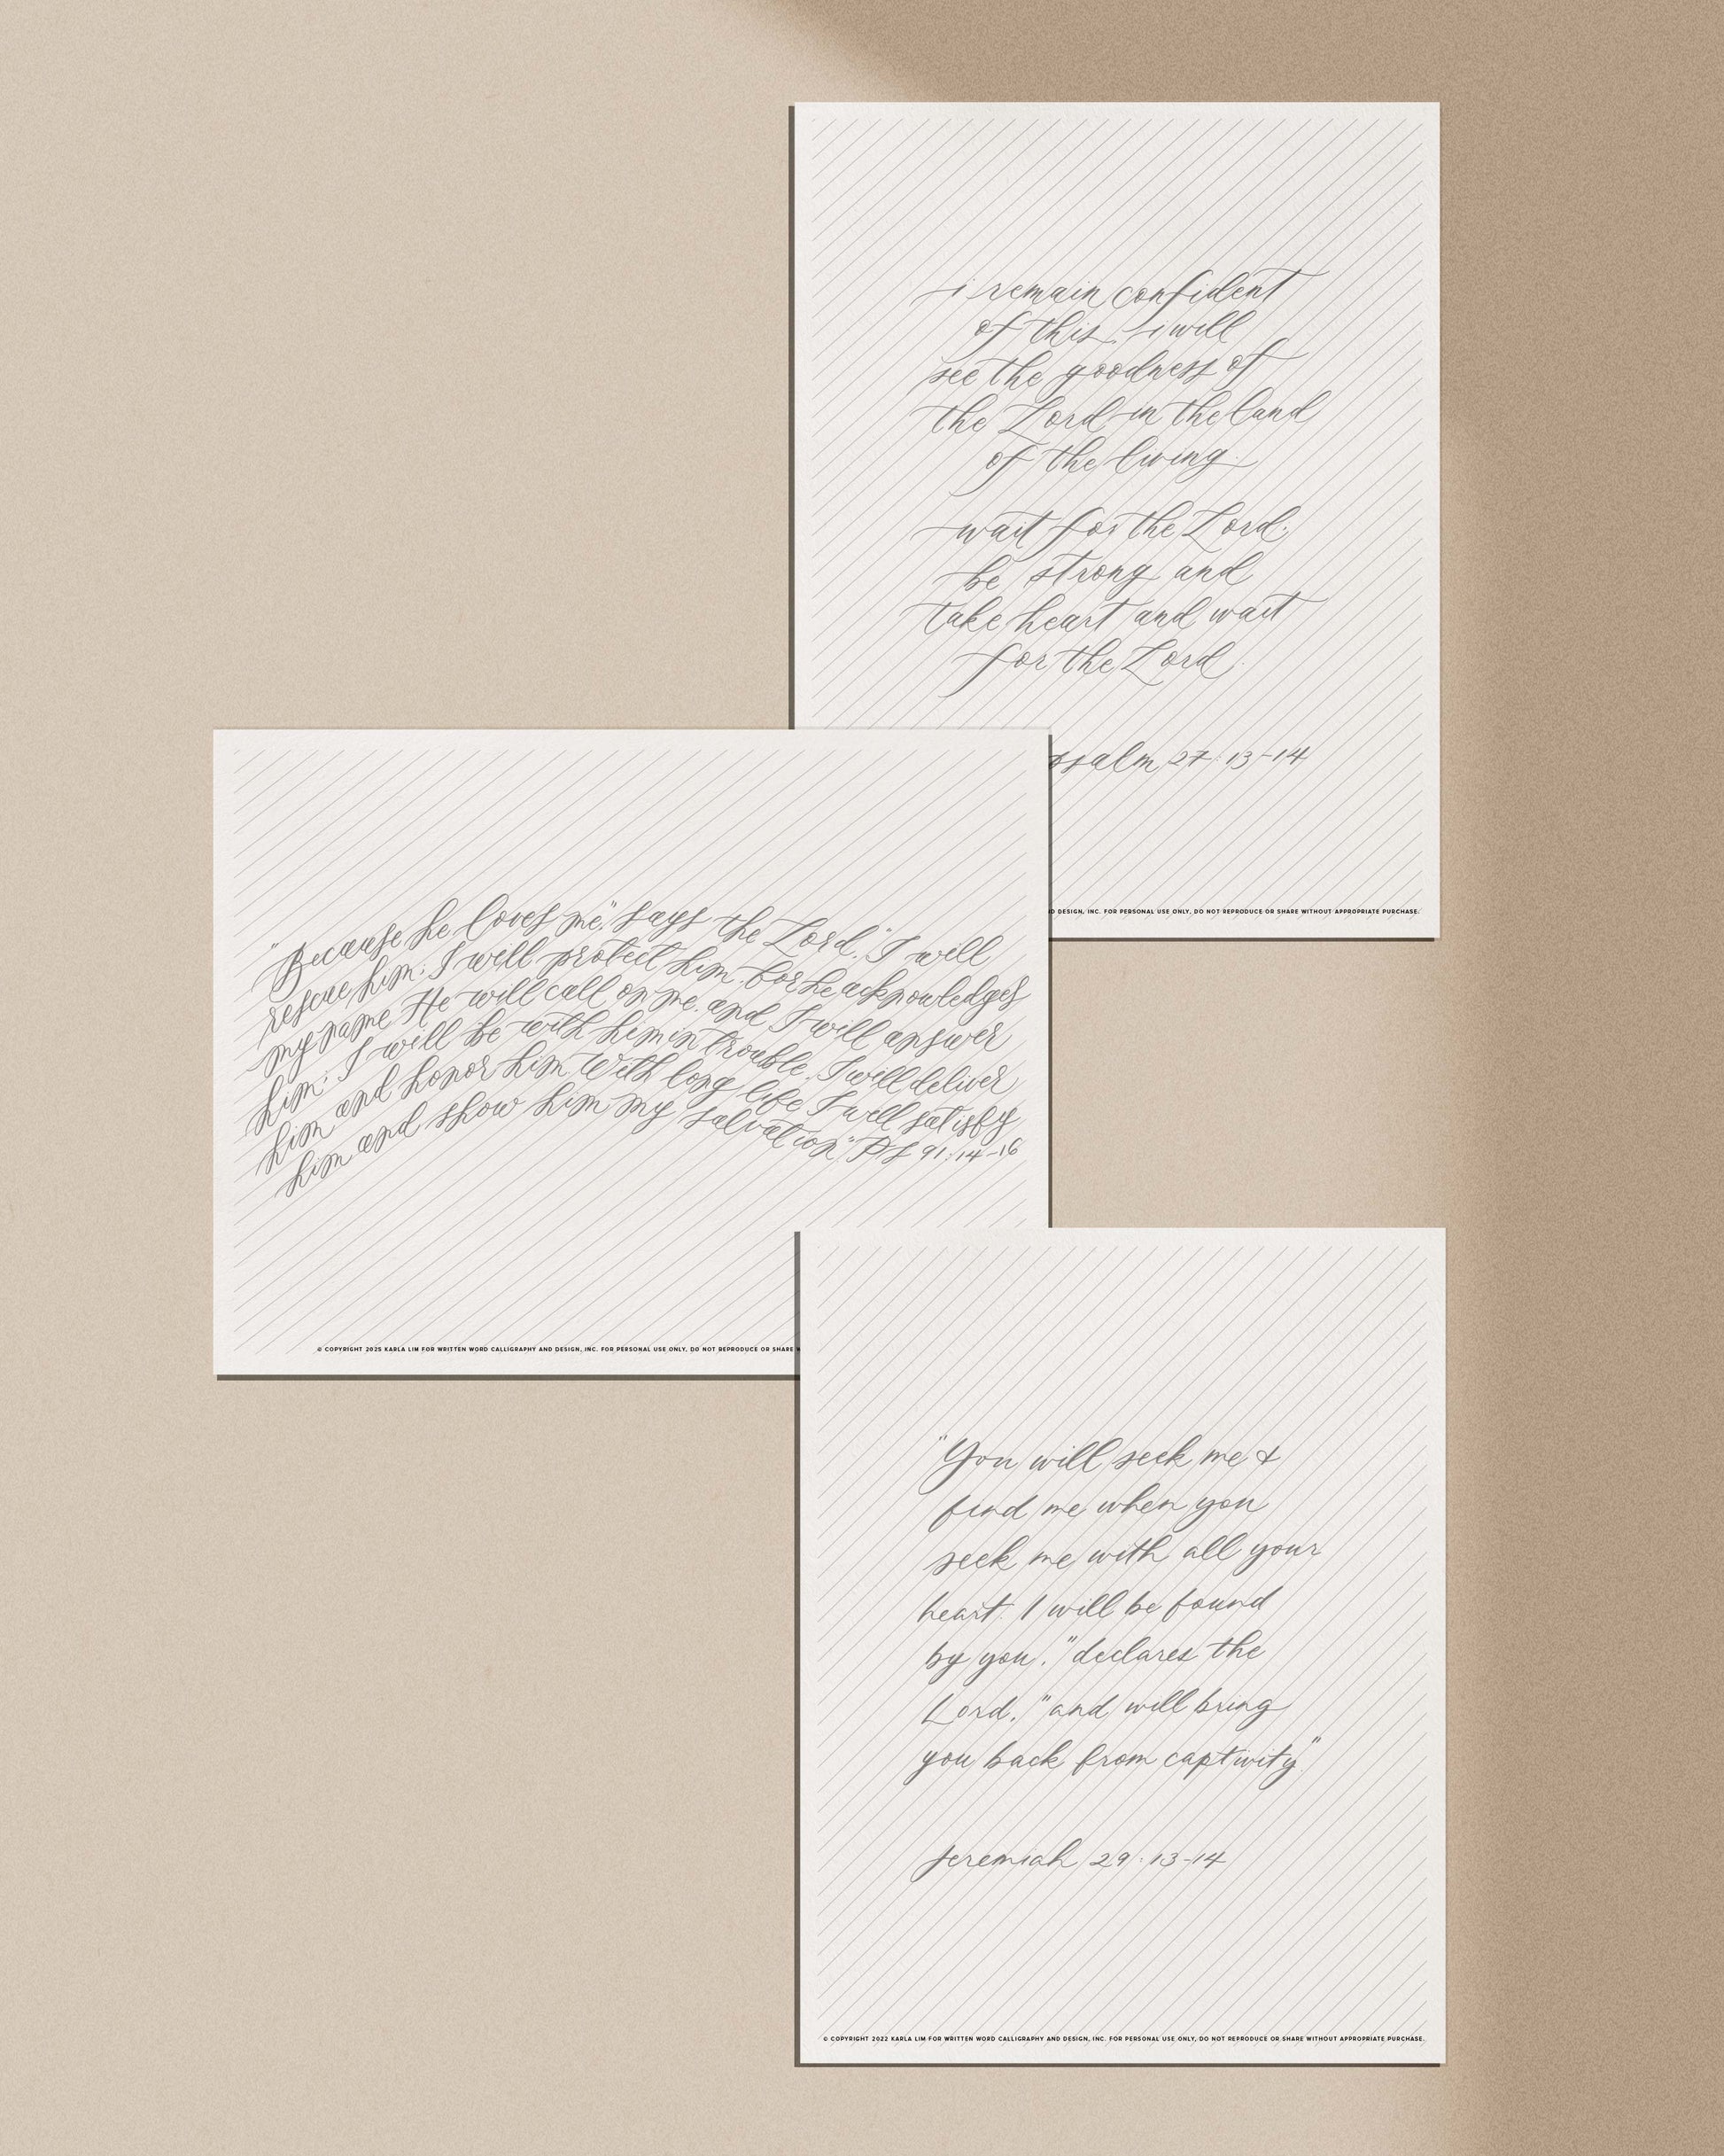 i remain confident
of this: i will
see the goodness of
the Lord in the land
of the living.
wait for the Lord;
be strong and
take heart and wait
for the Lord.
psalm 27:13-14
D DESIGN, INC. FOR PERSONAL USE ONLY, DO NOT REPRODUCE OR SHARE WITHOUT APPROPRIATE PURCHASE.
"Because he loves me," says the Lord, "I will
rescue him; I will protect him, for he acknowledges
my name. He will call on me, and I will answer
him; I will be with him in trouble, I will deliver
him and honor him. With long life I will satisfy
him and show him my salvation" PS 91:14-16
© COPYRIGHT 2025 KARLA LIM FOR WRITTEN WORD CALLIGRAPHY AND DESIGN, INC. FOR PERSONAL USE ONLY, DO NOT REPRODUCE OR SHARE W
"You will seek me &
find me when you
seek me with all your
heart. I will be found
by you," declares the
Lord, "and will bring
you back from captivity"
Jeremiah 29:13-14
© COPYRIGHT 2022 KARLA LIM FOR WRITTEN WORD CALLIGRAPHY AND DESIGN, INC. FOR PERSONAL USE ONLY, DO NOT REPRODUCE OR SHARE WITHOUT APPROPRIATE PURCHASE.